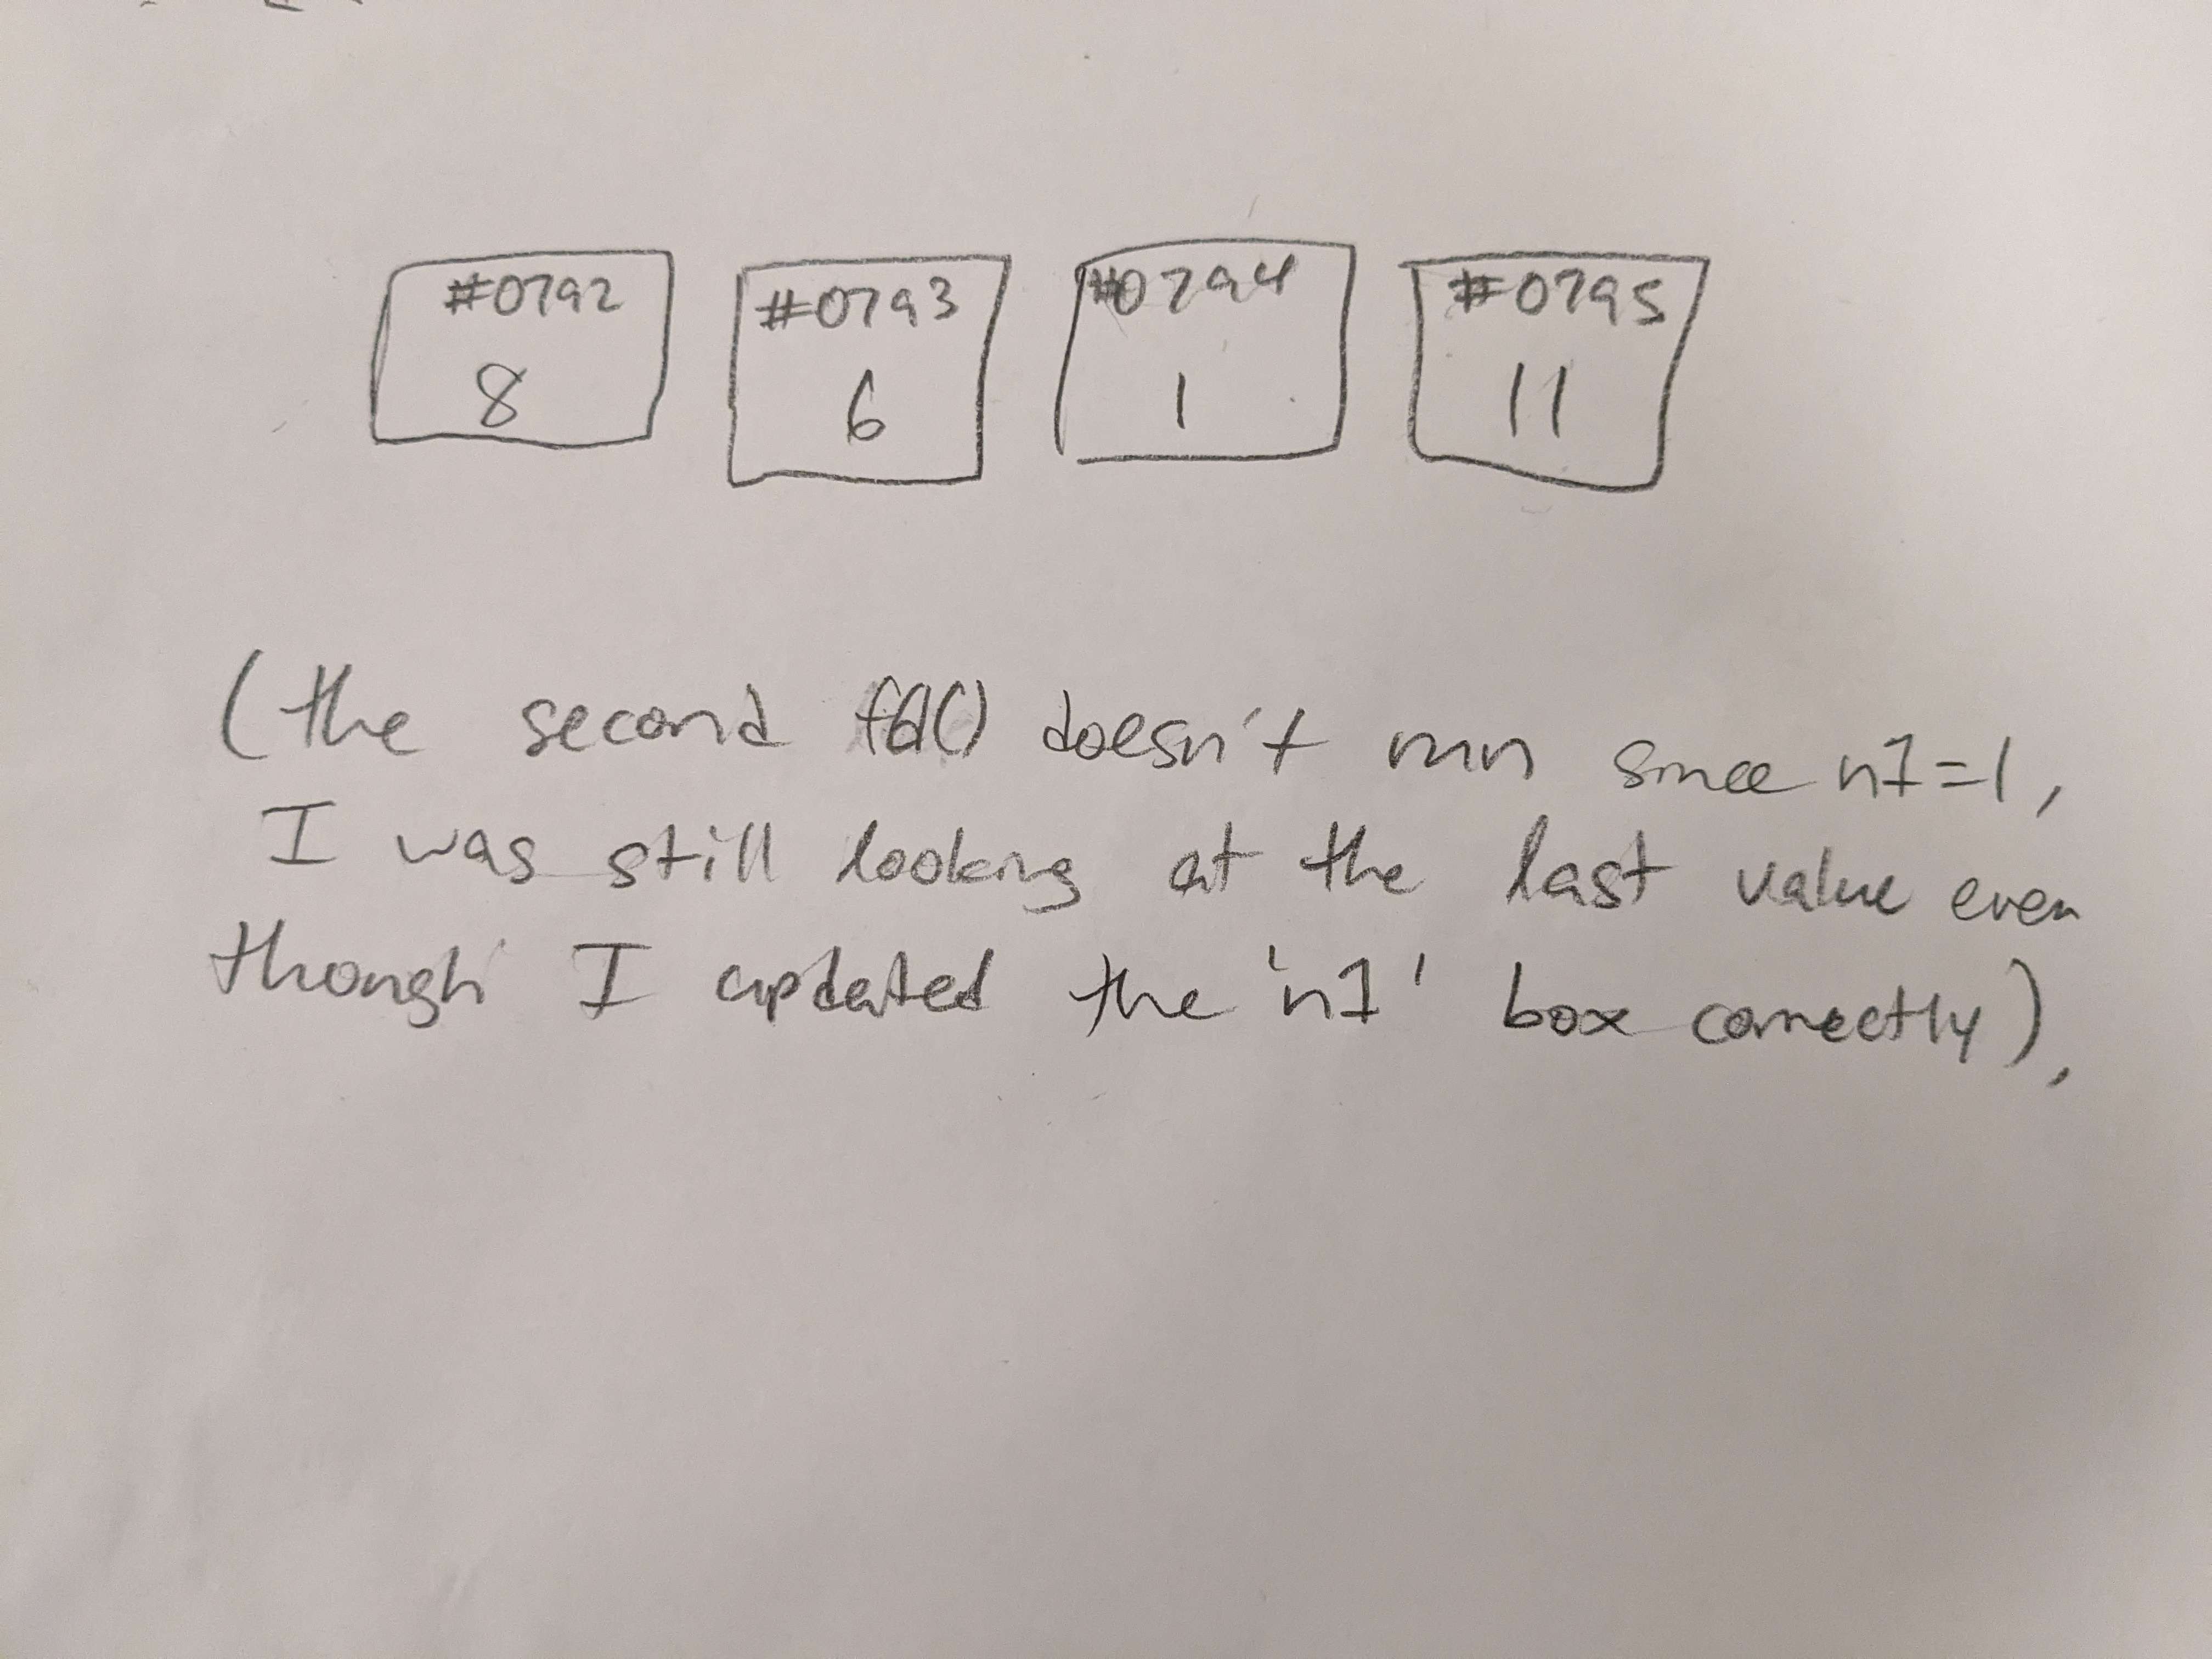 #07a2 #07a3 #07a4 #07a5
8 6 1 11
(the second fd() doesn't run since n1=1,
I was still looking at the last value even
though I updated the 'n1' box correctly),